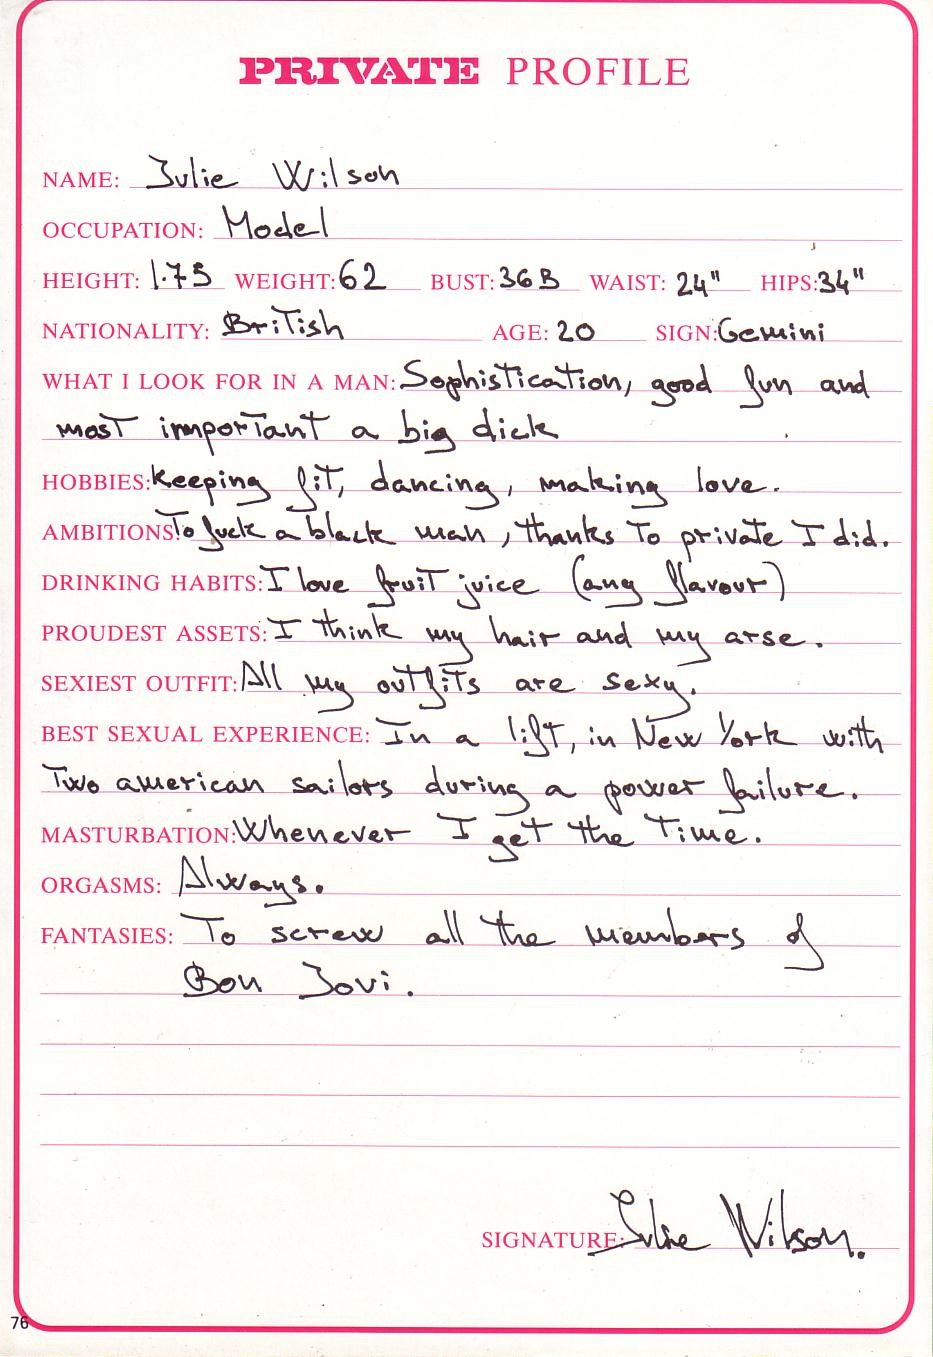 PRIVATE PROFILE
NAME: Julie Wilson
OCCUPATION: Model
HEIGHT: 1.75 WEIGHT: 62 BUST: 36B WAIST: 24" HIPS: 34"
NATIONALITY: British AGE: 20 SIGN: Gemini
WHAT I LOOK FOR IN A MAN: Sophistication, good fun and
most important a big dick
HOBBIES: Keeping fit, dancing, making love.
AMBITIONS: To fuck a black man, thanks to private I did.
DRINKING HABITS: I love fruit juice (any flavour)
PROUDEST ASSETS: I think my hair and my arse.
SEXIEST OUTFIT: All my outfits are sexy.
BEST SEXUAL EXPERIENCE: In a lift, in New York with
Two american sailors during a power failure.
MASTURBATION: Whenever I get the Time.
ORGASMS: Always.
FANTASIES: To screw all the members of
Bon Jovi.
SIGNATURE: Julie Wilson.
76